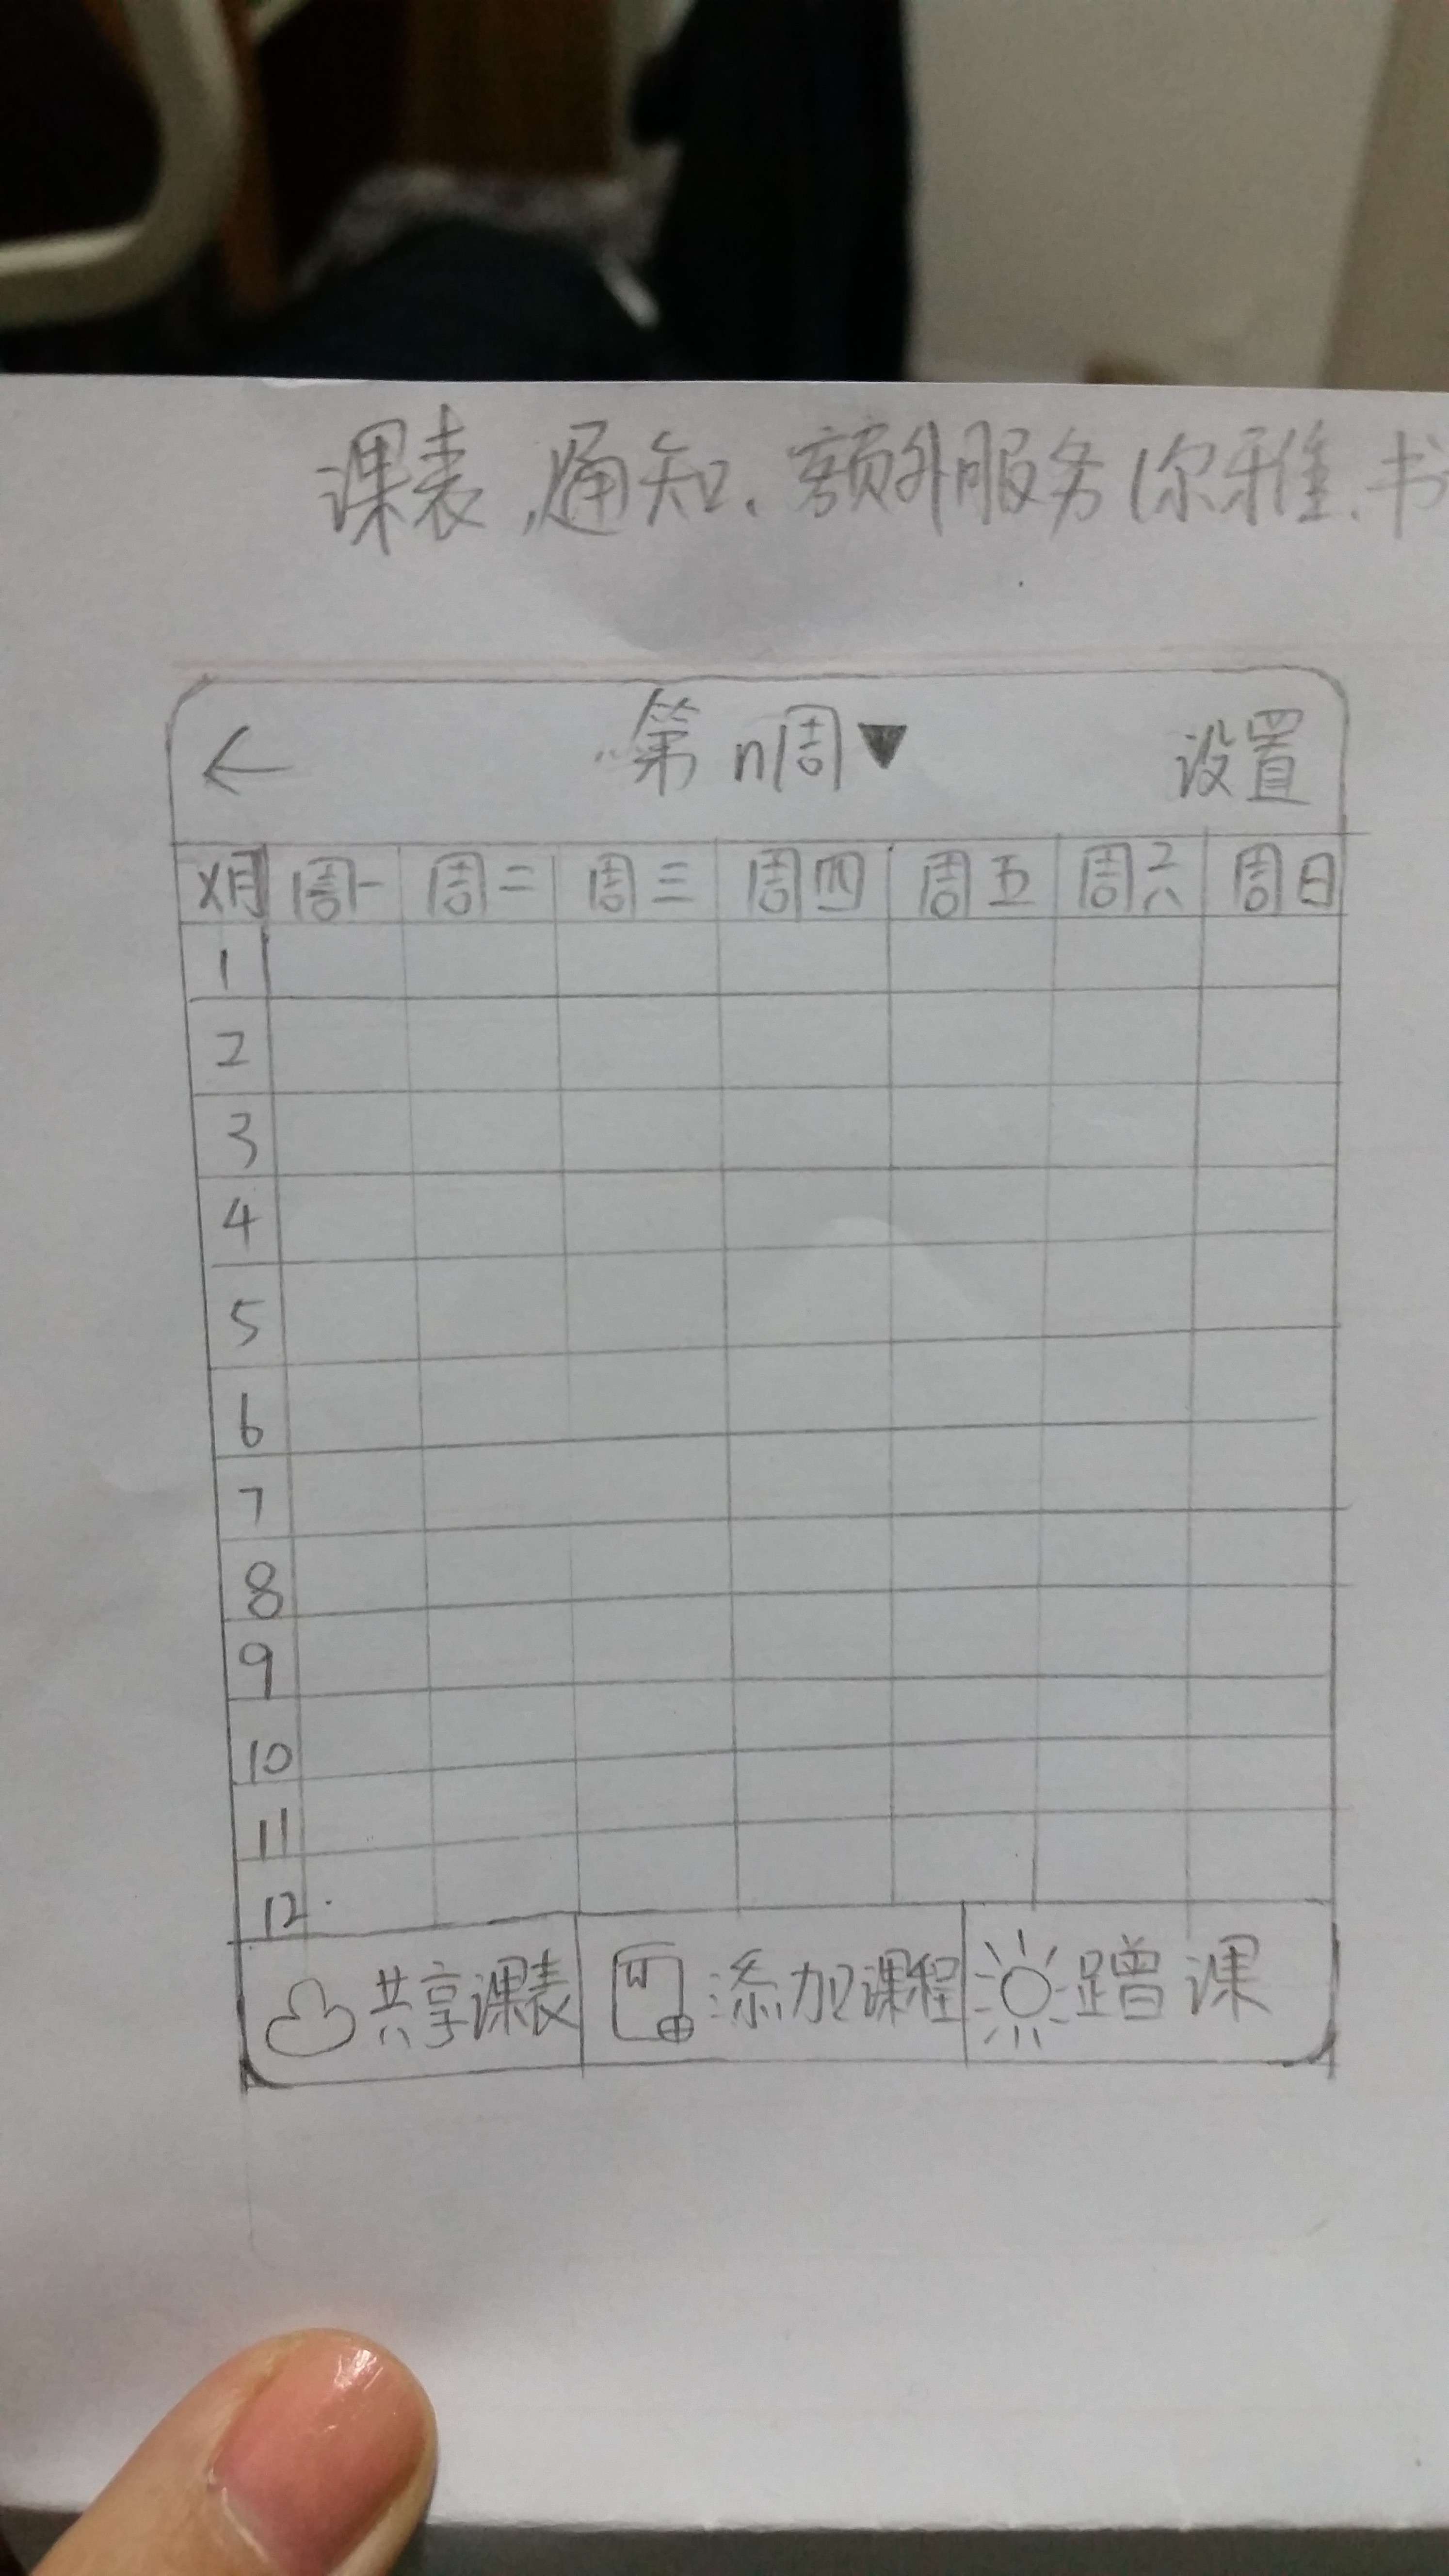 课表、通知、额外服务(尔雅、书
← 第n周▼ 设置
X月 周一 周二 周三 周四 周五 周六 周日
1
2
3
4
5
6
7
8
9
10
11
12
共享课表 添加课程 蹭课